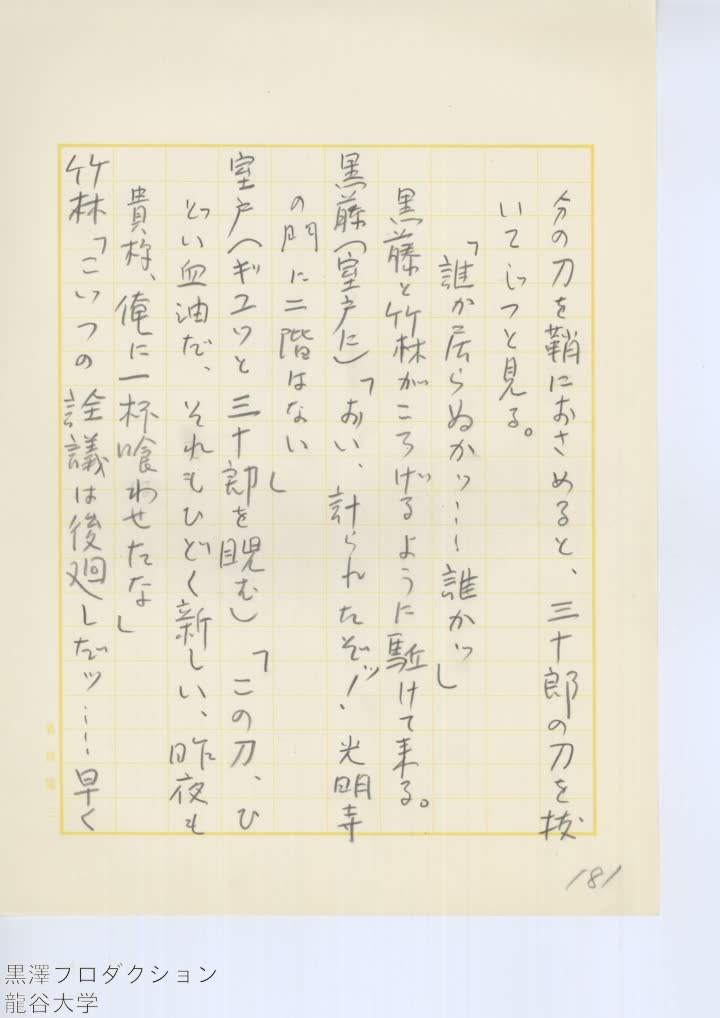 分の刀を鞘におさめると、三十郎の刀を抜
いてじっと見る。
「誰か居らぬかッ……誰かッ」
黒藤と竹林がころげるように駈けて来る。
黒藤(室戸に)「おい、計られたぞッ! 光明寺
の門に二階はない」
室戸(ギュッと三十郎を睨む)「この刀、ひ
どい血油だ、それもひどく新しい、昨夜も
貴様、俺に一杯喰わせたな」
竹林「こいつの詮議は後廻しだッ……早く
181
黒澤プロダクション
龍谷大学